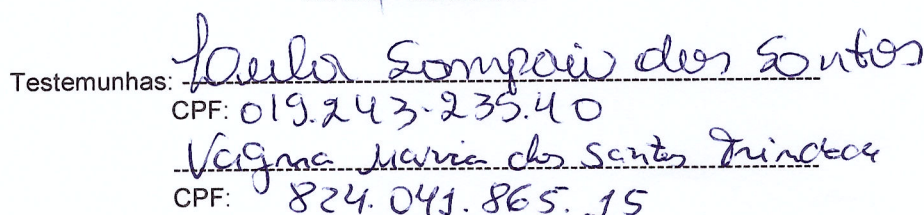 Testemunhas: Paula Sampaio dos Santos
CPF: 019.243.235.40
Vagna Maria dos Santos Trindade
CPF: 824.041.865.15